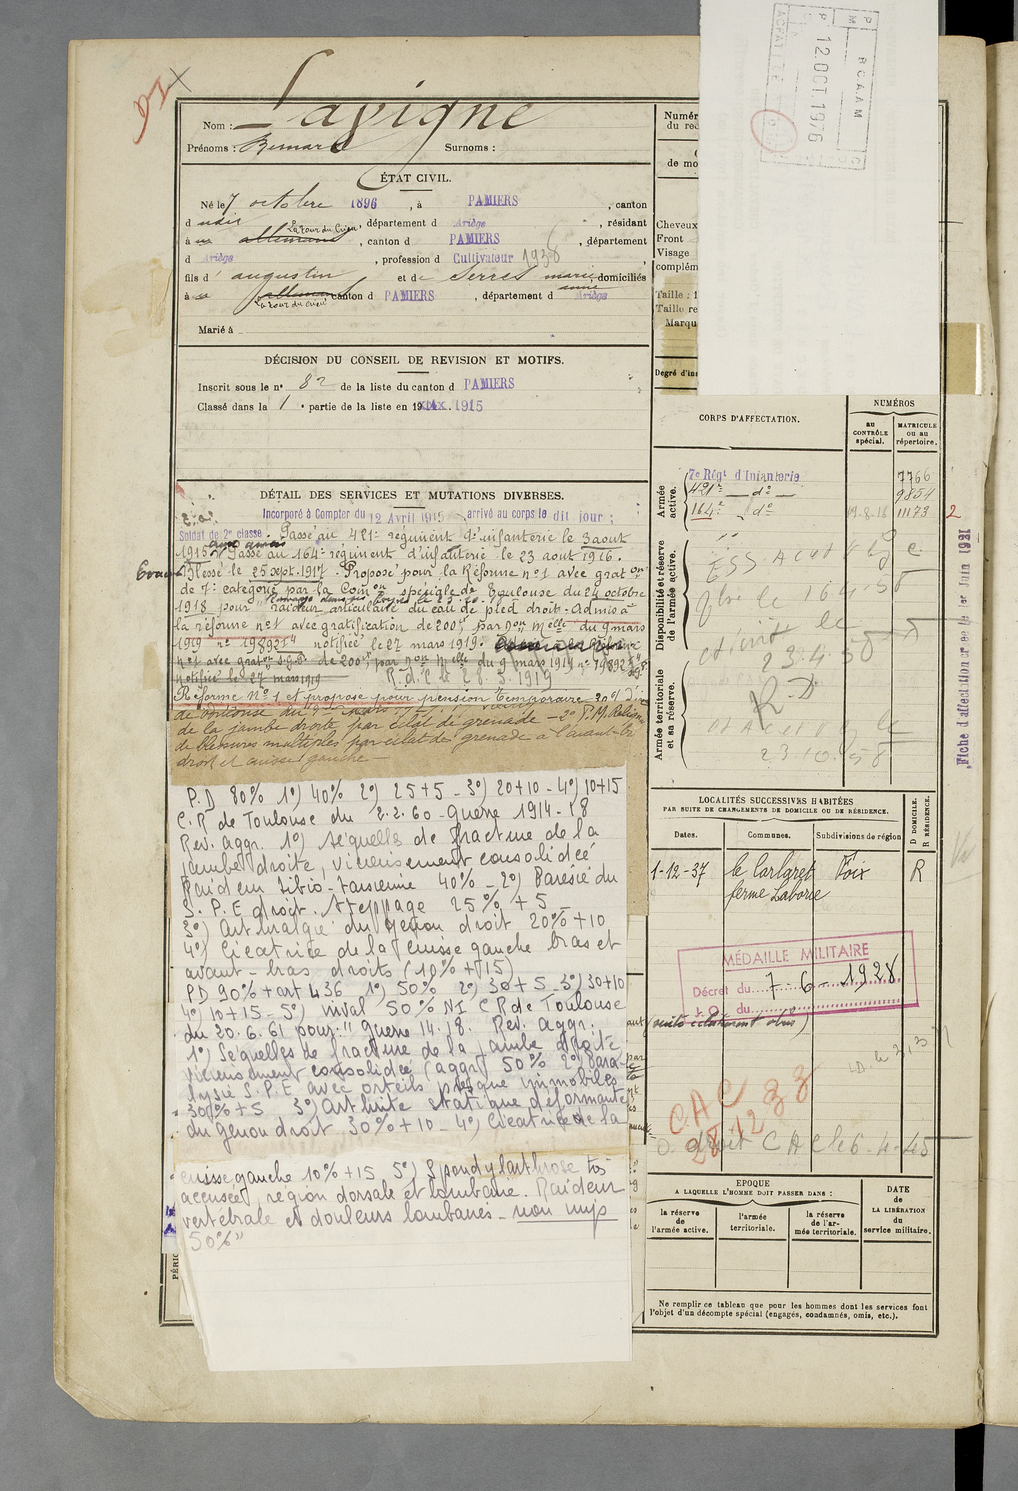 97
Nom : Lavigne
Prénoms : Bernard Surnoms :
ÉTAT CIVIL.
Né le 7 octobre 1896, à PAMIERS, canton
d udit, département d Ariège, résidant
La Tour du Crieu
à allemans, canton d PAMIERS, département
d Ariège, profession d Cultivateur 1938
fils d' augustin et de Serres marie anne, domiciliés
à allemans, canton d PAMIERS, département d Ariège
La Tour du Crieu
Marié à
DÉCISION DU CONSEIL DE REVISION ET MOTIFS.
Inscrit sous le n° 82 de la liste du canton d PAMIERS
Classé dans la 1 e partie de la liste en 19 1915
DÉTAIL DES SERVICES ET MUTATIONS DIVERSES.
Incorporé à Compter du 12 Avril 1915 arrivé au corps le dit jour ;
Soldat de 2e classe. Passé au 421e régiment d'infanterie le 3 aout
1915. Passé au 164e régiment d'infanterie le 23 aout 1916.
Evacué Blessé le 25 sept. 1917. Proposé pour la Réforme n° 1 avec grat on
de 7e catégorie par la Com on spéciale de Toulouse du 24 octobre
1918 pour "raideur articulaire du cou de pied droit. Admis à
la réforme n° 1 avec gratification de 200f par Don Melle du 9 mars
1919 n° 19892 notifiée le 27 mars 1919.
n° 1 avec grat on de 200f par Don Melle du 9 mars 1919 n° 79892
notifiée le 27 mars 1919 R.d.C le 28.5.1919
Réforme n° 1 et proposé pour pension temporaire 20%
de la jambe droite par éclat de grenade
de blessures multiples par éclat de grenade à l'avant-bras
droit et cuisse gauche
P.D 80% 1°) 40% 2°) 25+5 - 3°) 20+10 - 4°) 10+15
C.R de Toulouse du 2.2.60 - Guerre 1914-18
Rev. aggr. 1°) Séquelles de fracture de la
jambe droite, vicieusement consolidée
Raideur tibio-tarsienne 40% - 2°) Parésie du
S.P.E droit. Steppage 25% + 5 -
3°) Arthralgie du genou droit 20% + 10
4°) Cicatrice de la cuisse gauche bras et
avant-bras droits (10% + 15)
PD 90% + art L36 1°) 50% 2°) 30+5 3°) 30+10
4°) 10+15 - 5°) inval 50% NI CR de Toulouse
du 20.6.61 pour : " guerre 14.18. Rev. aggr.
1°) Séquelles de fracture de la jambe droite
vicieusement consolidée (aggr) 50% 2°) Para-
lysie S.P.E avec orteils presque immobiles
30% + 5 3°) Arthrite statique déformante
du genou droit 30% + 10 - 4°) Cicatrice de la
cuisse gauche 10% + 15 5°) Spondylarthrose très
accusée, région dorsale et lombaire. Raideur
vertébrale et douleurs lombaires - non imp
50%"
PÉRIO
Numér
du rec
de mo
Cheveux
Front
Visage
complém
Taille : 1
Taille re
Marqu
Degré d'ins
B.C.A.A.M
12.OCT.1976
CORPS D'AFFECTATION.
NUMÉROS
au CONTRÔLE spécial.
MATRICULE ou au répertoire.
Armée active.
7e Régt d'Infanterie 7766
421e — d° — 9854
164e — d° 19-8-16 11173 2
Disponibilité et réserve de l'armée active.
le 16.4.58
le
23.4.58
Armée territoriale et sa réserve.
R.D
23.10.58
Fiche d'affectation créée le 1er Juin 1921
LOCALITÉS SUCCESSIVES HABITÉES
PAR SUITE DE CHANGEMENTS DE DOMICILE OU DE RÉSIDENCE.
D DOMICILE. R RÉSIDENCE.
Dates. Communes. Subdivisions de région
1-12-37 le Carlaret Foix R
ferme Laborie
MÉDAILLE MILITAIRE
Décret du 7-6-1928
J.O. du
CAC 33
28.12
D. droit CAC le 6-4-45
EPOQUE
A LAQUELLE L'HOMME DOIT PASSER DANS :
la réserve de l'armée active.
l'armée territoriale.
la réserve de l'armée territoriale.
DATE de LA LIBÉRATION du service militaire.
Ne remplir ce tableau que pour les hommes dont les services font
l'objet d'un décompte spécial (engagés, condamnés, omis, etc.).